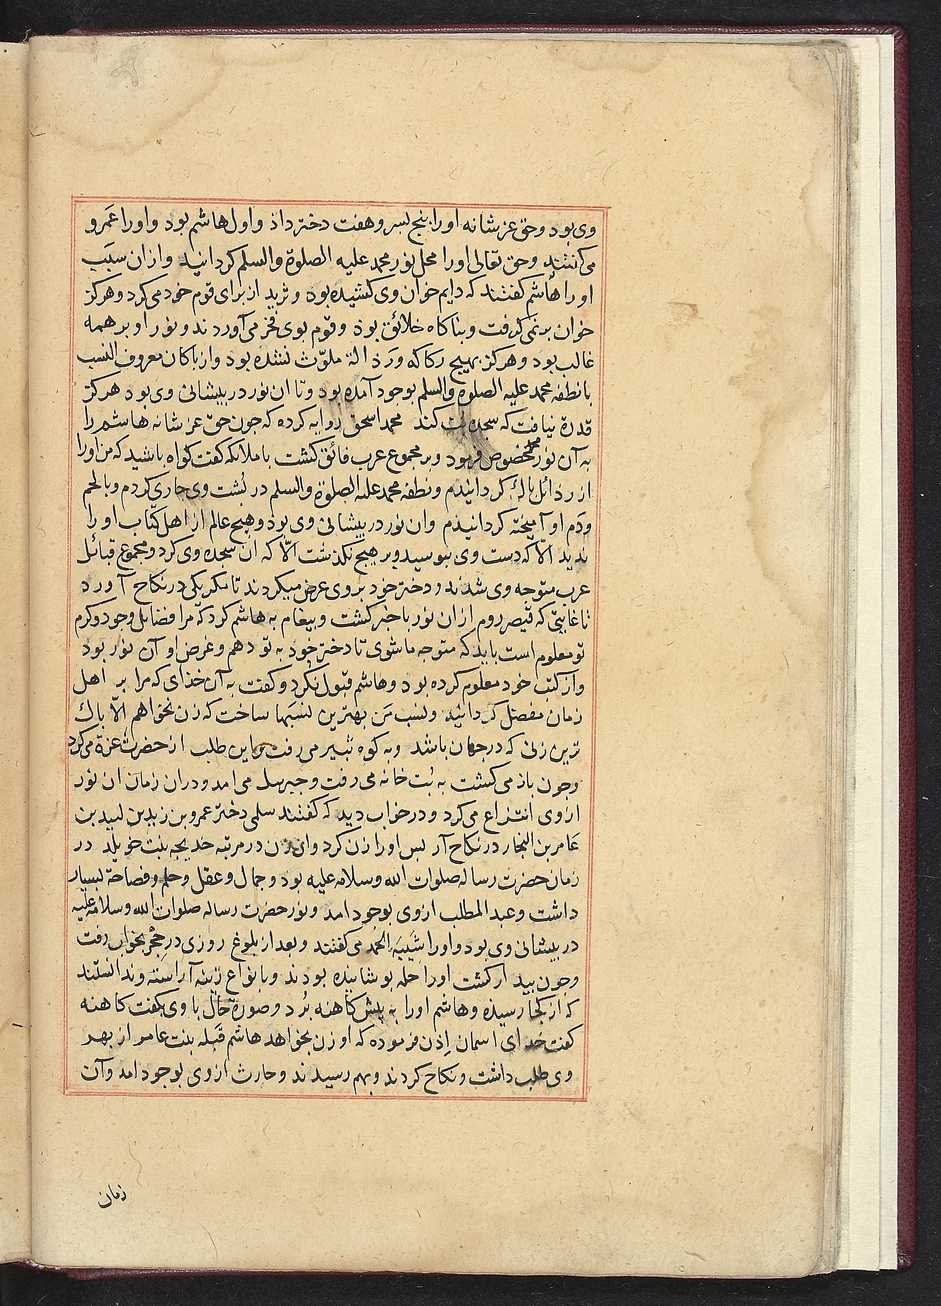 وی بود و حق عز شانه او را پنج پسر و هفت دختر داذ و اول هاشم بود و او را عمرو
می کفتند و حق تعالی او را محل نور محمد علیه الصلوة والسلم کردانید و از ان سبب
او را هاشم کفتند که دایم خوان وی کشیده بود و ثرید از برای قوم خود می کرد و هرکز
خوان بر نمی کرفت و بناکاه خلائق بوذ و قوم بوی فخر می آوردند و نور او بر همه
غالب بود و هرکز بهیج رکاکه و رذالة ملوث نشده بود و از باکان معروف النسب
با نطفه محمد علیه الصلوة والسلم بوجود آمده بود و تا ان نور در بیشانی وی بود هرکز
قدرة نیافت که سجده بت کند محمد اسحق روایه کرده که جون حق عز شانه هاشم را
به آن نور مخصوص فرمود و بر مجموع عرب فائق کشت با ملائکه کفت کواه باشید که من او را
از رذائل باک کردانیدم و نطفه محمد علیه الصلوة والسلم در بشت وی جاری کردم و با لحم
و دم او آمیخته کردانیذم و ان نور در بیشانی وی بوذ و هیج عالم از اهل کتاب او را
ندید الا که دست وی ببوسید و بر هیج نکذشت الا که ان سجده وی کرد و مجموع قبائل
عرب متوجه وی شدند و دختر خود بر وی عرض میکردند تا مکر یکی در نکاح آورد
تا غایتی که قیصر روم از ان نور با خبر کشت و بیغام به هاشم کرد که مرا فضائل وجود و کرم
تو معلوم است باید که متوجه ما شوی تا دختر خود به تو دهم و غرض او آن نور بود
و از کتب خود معلوم کرده بود و هاشم قبول نکرد و کفت به آن خدای که مرا بر اهل
زمان مفضل کردانید و نسب من بهترین نسبها ساخت که زن نخواهم الا باک
ترین زنی که در جهان باشد و به کوه ثبیر می رفت و این طلب از حضرت عزة می کرد
و جون باز می کشت به بت خانه می رفت و جبریل می امد و دران زمان ان نور
از وی انتزاع می کرد و در خواب دید که کفتند سلمی دختر عمرو بن زید بن لبید بن
عامر بن النجار در نکاح آر بس او را زن کرد و ان زن در مرتبه خدیجه بنت خویلد در
زمان حضرت رساله صلوات الله وسلامه علیه بود و جمال و عقل و حلم و فصاحة بسیار
داشت و عبد المطلب از وی بوجود امد و نور حضرت رساله صلوات الله وسلامه علیه
در بیشانی وی بود و او را شیبه الحمد می کفتند و بعد از بلوغ روزی در حجر بخواب رفت
و جون بیدار کشت او را حله بوشانیده بودند و بانواع زینه آراسته و ندانستند
که از کجا رسیده و هاشم او را به پیش کاهنه برد و صورة حال با وی بکفت کاهنه
کفت خدای اسمان اذن فرموده که او زن بخواهد هاشم قبله بنت عامر از بهر
وی طلب داشت و نکاح کردند و بهم رسیدند و حارث از وی بوجود امد و آن
زمان